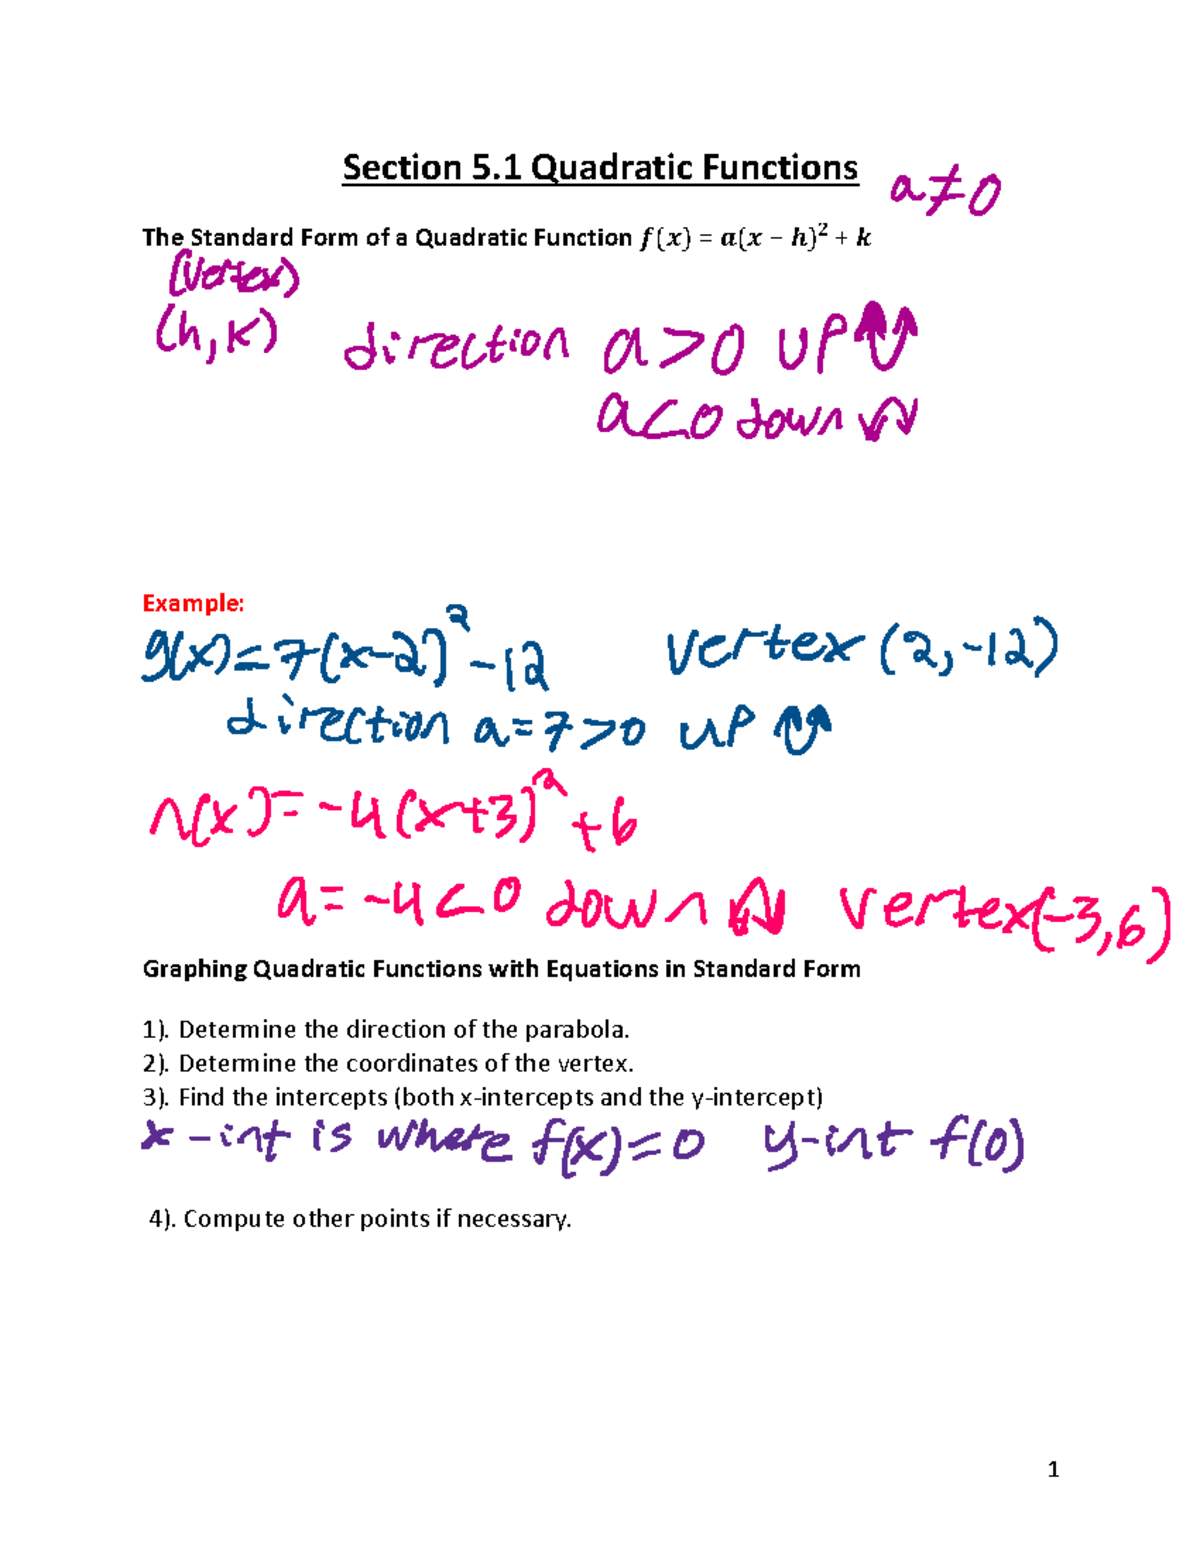 Section 5.1 Quadratic Functions
a≠0
The Standard Form of a Quadratic Function f(x) = a(x − h)² + k
(Vertex)
(h,k) direction a>0 up
a<0 down
Example:
g(x)=7(x-2)²-12 vertex (2,-12)
direction a=7>0 up
r(x)=-4(x+3)²+6
a=-4<0 down vertex(-3,6)
Graphing Quadratic Functions with Equations in Standard Form
1). Determine the direction of the parabola.
2). Determine the coordinates of the vertex.
3). Find the intercepts (both x-intercepts and the y-intercept)
x-int is where f(x)=0 y-int f(0)
4). Compute other points if necessary.
1